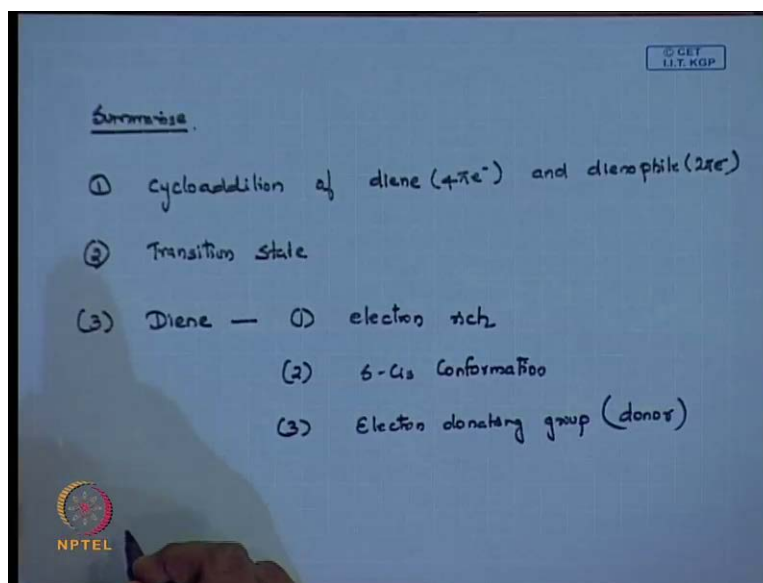 © CET
I.I.T. KGP
Summarise.
① Cycloaddition of diene (4πe⁻) and dienophile (2πe⁻)
② Transition state
(3) Diene — ① electron rich
(2) S-Cis Conformation
(3) Electon donating group (donor)
NPTEL